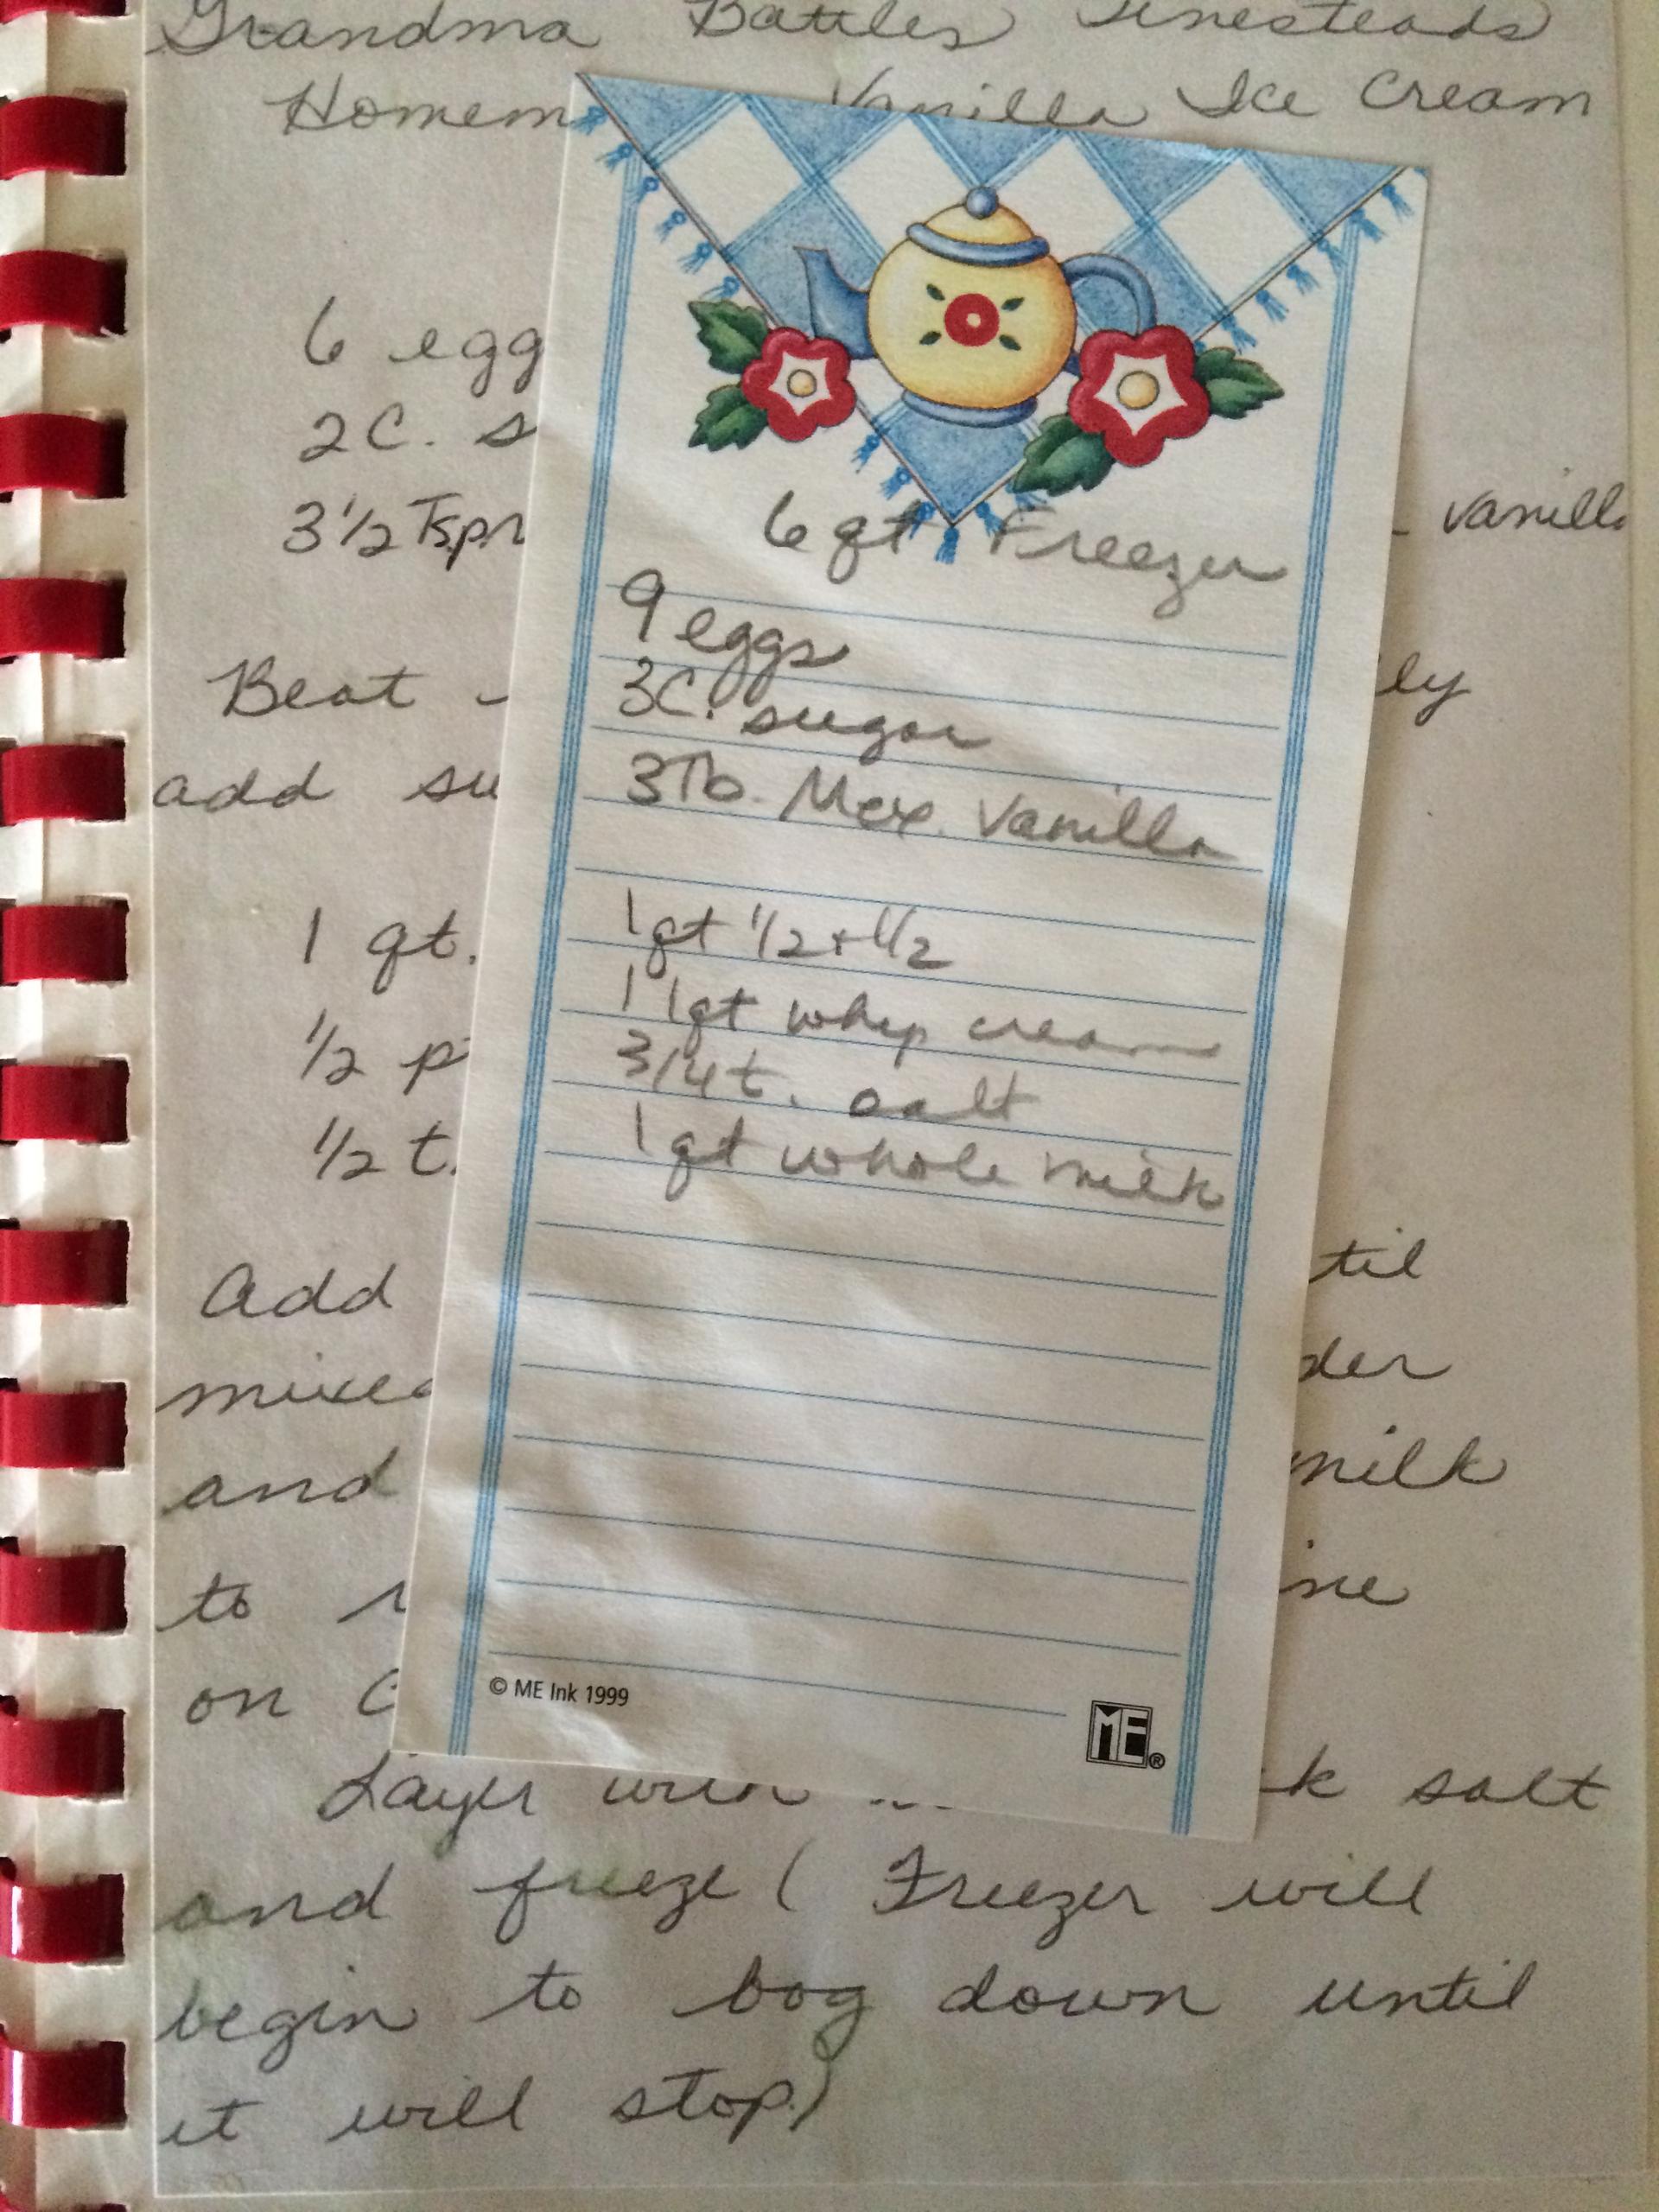 Grandma Battles
Homem Vanilla Ice Cream
6 egg
2 C. s
3 1/2 Tsp. vanilla
Beat ly
add su
1 qt.
1/2 p
1/2 t.
Add til
mixed der
and milk
to ine
on
Layer with k salt
and freeze ( Freezer will
begin to bog down until
it will stop.)
6 qt Freezer
9 eggs
3 C. sugar
3 Tb. Mex. Vanilla
1 qt 1/2 + 1/2
1 1qt whip cream
3/4 t. salt
1 qt whole milk
© ME Ink 1999
ME®